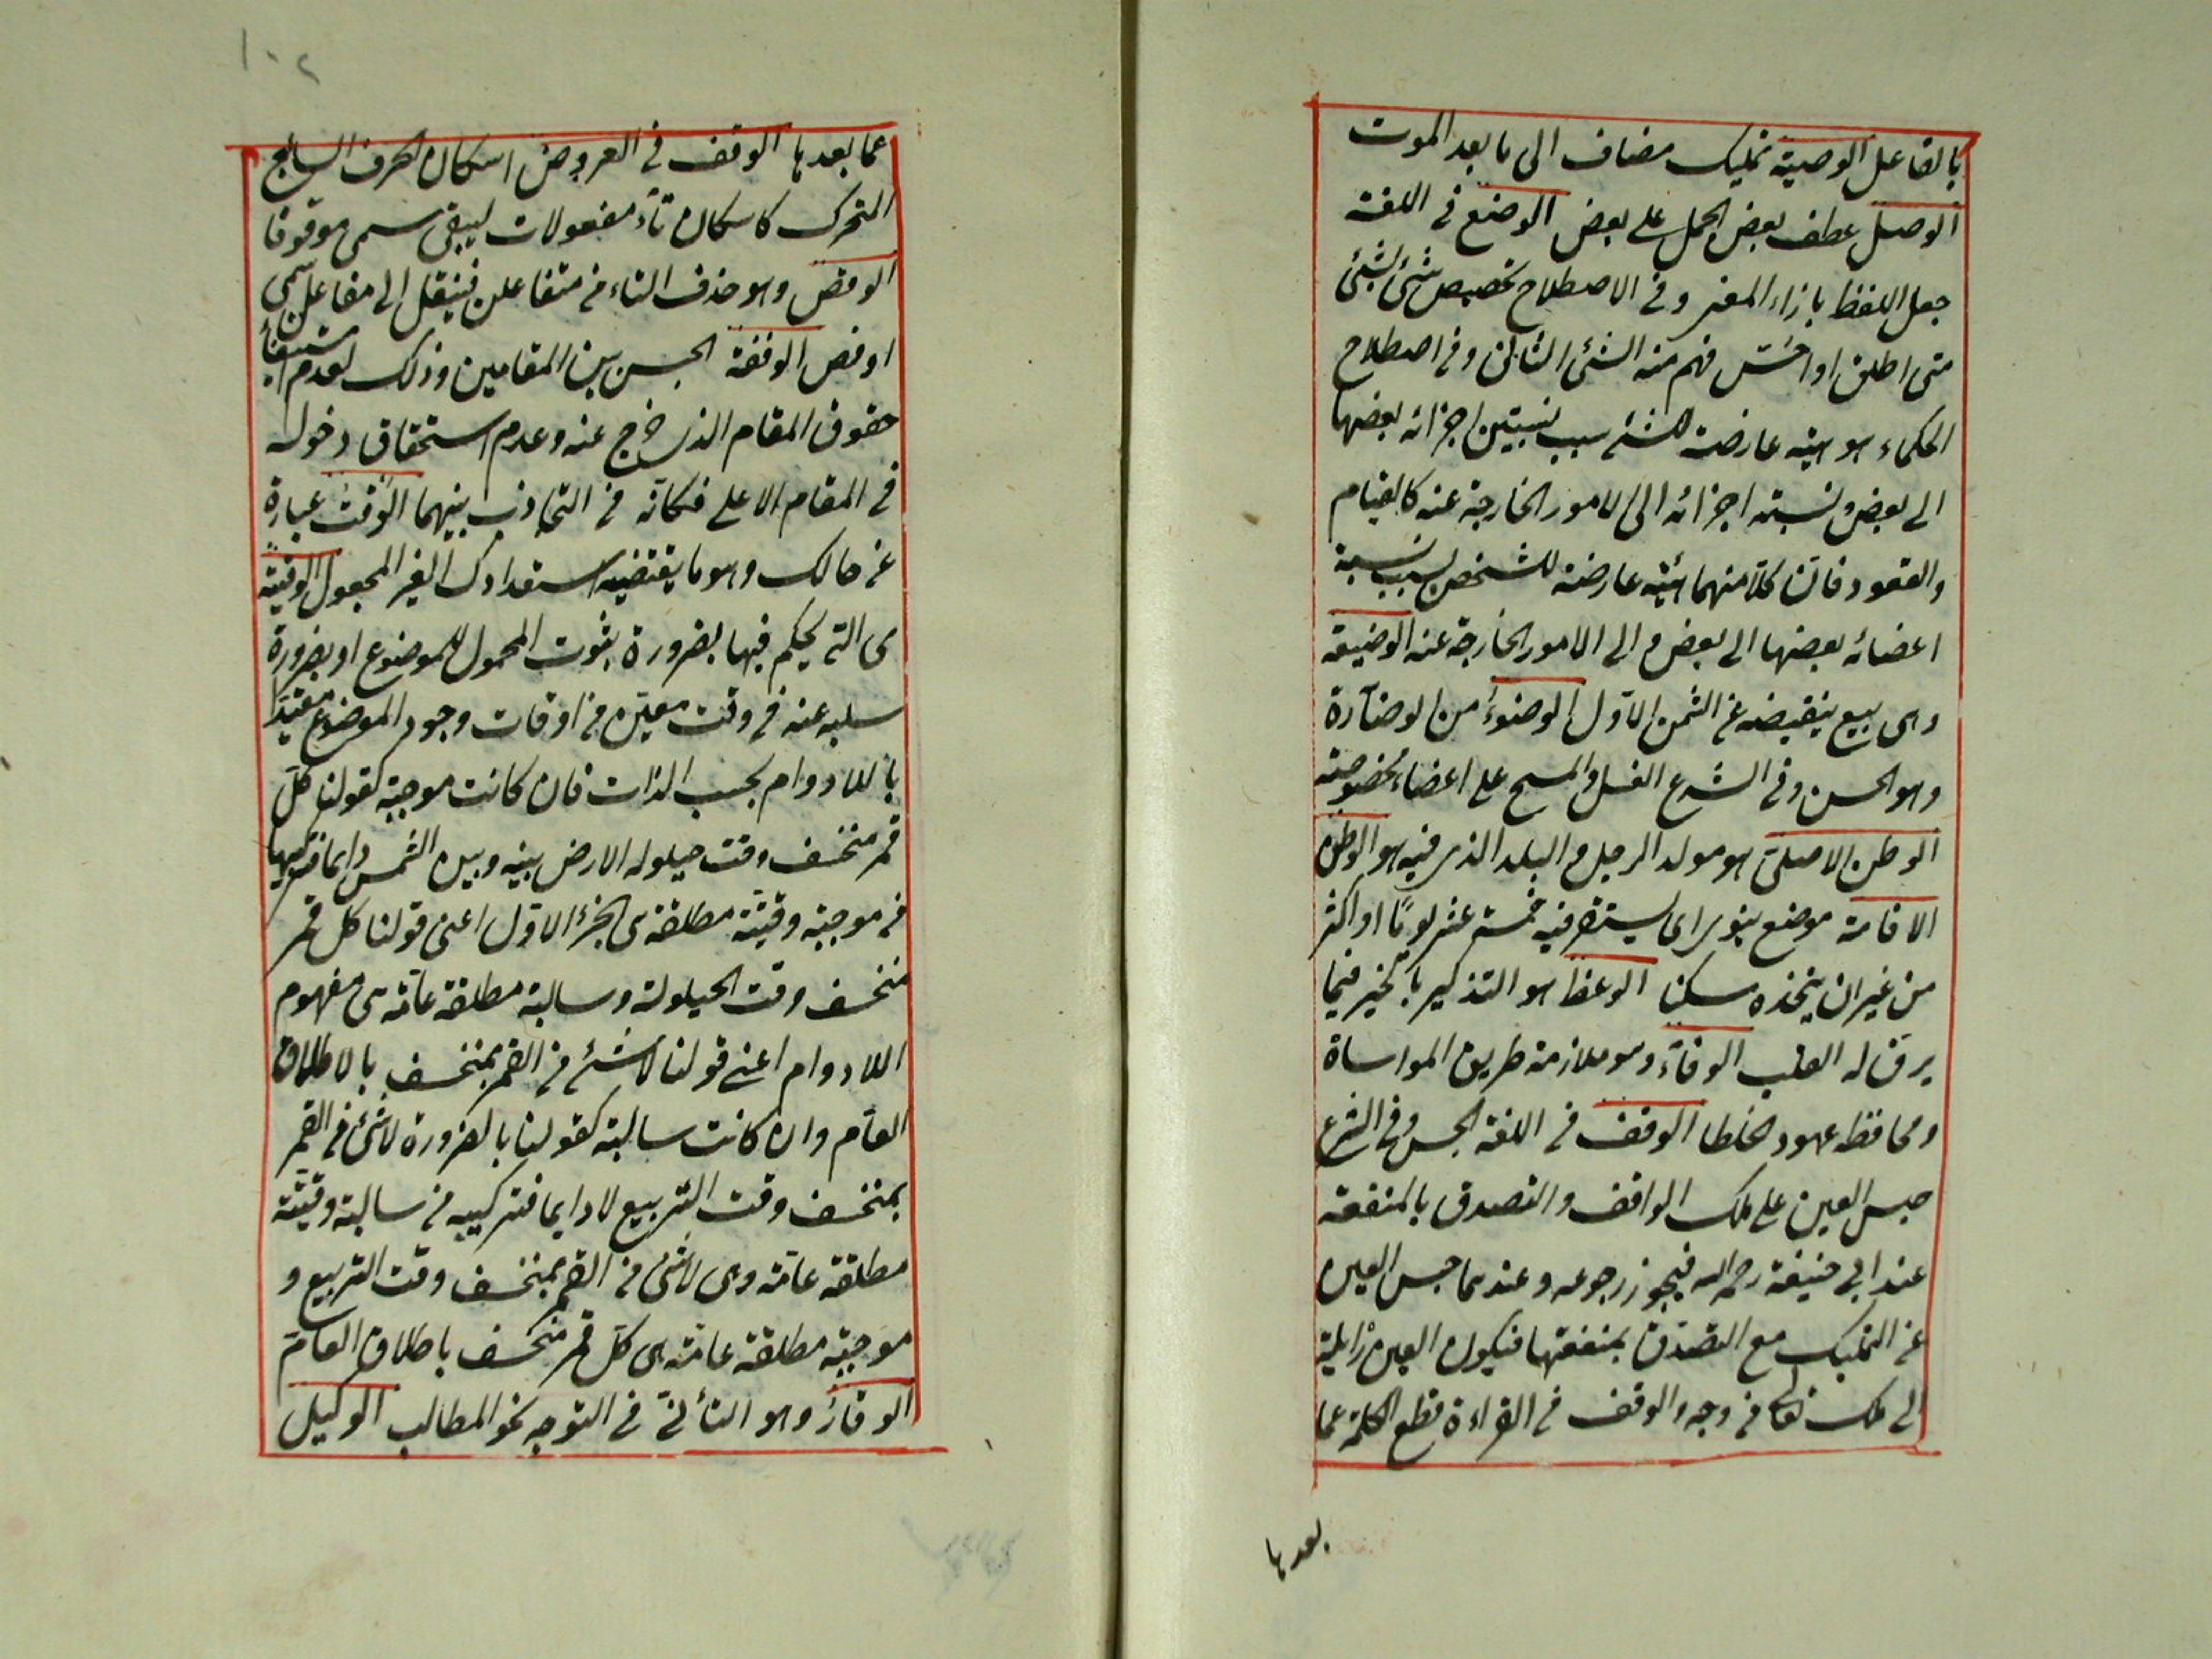 بالفاعل الوصية تمليك مضاف الى ما بعد الموت
الوصل عطف بعض الجمل على بعض الوضع في اللغة
جعل اللفظ بازاء المعنى وفي الاصطلاح تخصيص شئ بشئ
متى اطلق او احس فهم منه الشئ الثانى وفى اصطلاح
الحكماء هو هيئة عارضة للشئ بسبب نسبتين اجزائه بعضها
الى بعض ونسبته اجزائه الى الامور الخارجة عنه كالقيام
والقعود فان كلا منهما هيئة عارضة للشخص بسبب نسبة
اعضائه بعضها الى بعض والى الامور الخارجة عنه الوضيعة
وهى بيع ينقيصه عن الثمن الاول الوضوء من الوضآءة
وهو الحسن وفى الشرع الغسل والمسح على اعضاء مخصوصة
الوطن الاصلى هو مولد الرجل والبلد الذى فيه هو الوطن
الاقامة موضع ينوى ان يستقر فيه خمسة عشر يوما او اكثر
من غير ان يتخذه مسكنا الوعظ هو التذكير بالخير فيما
يرق له القلب الوفآء وهو ملازمة طريق المواساة
ومحافظة عهود الخلطا الوقف فى اللغة الحبس وفى الشرع
حبس العين على ملك الواقف والتصدق بالمنفعة
عند ابى حنيفة رحمه الله فيجوز رجوعه وعندهما حبس العين
عن التمليك مع التصدق بمنفعتها فيكون العين زايلة
الى ملك الله تعالى من وجه والوقف فى القراءة قطع الكلمة عما
بعدها
١٠٢
عما بعدها الوقف فى العروض اسكان الحرف السابع
المتحرك كاسكان تآء مفعولات ليبقى سمى موقوفا
الوقص وهو حذف التاء من متفاعلن فينقل الى مفاعلن سمى
اوقص الوقفة الحبس بين المقامين وذلك لعدم استيفاء
حقوق المقام الذى خرج عنه وعدم استحقاق دخوله
فى المقام الاعلى فكانه فى التجاذب بينهما الوقت عبارة
عن حالك وهو ما يقتضيه استعدادك الغير المجعول الوقتية
هى التى يحكم فيها بضرورة ثبوت المحمول للموضوع او بضرورة
سلبه عنه فى وقت معين من اوقات وجود الموضوع مقيدا
باللادوام بحسب الذات فان كانت موجبة كقولنا كل
قمر منخسف وقت حيلولة الارض بينه وبين الشمس لا دايما فتركيبها
من موجبة وقتية مطلقة هى الجزء الاول اعنى قولنا كل قمر
منخسف وقت الحيلولة وسالبة مطلقة عامة هى مفهوم
اللادوام اعنى قولنا لا شئ من القمر بمنخسف بالاطلاق
العام وان كانت سالبة كقولنا بالضرورة لا شئ من القمر
بمنخسف وقت التربيع لا دايما فتركيبه من سالبة وقتية
مطلقة عامة وهى لا شئ من القمر بمنخسف وقت التربيع و
موجبة مطلقة عامة هى كل قمر منخسف باطلاق العام
الوقار وهو التأنى فى التوجه نحو المطالب الوكيل